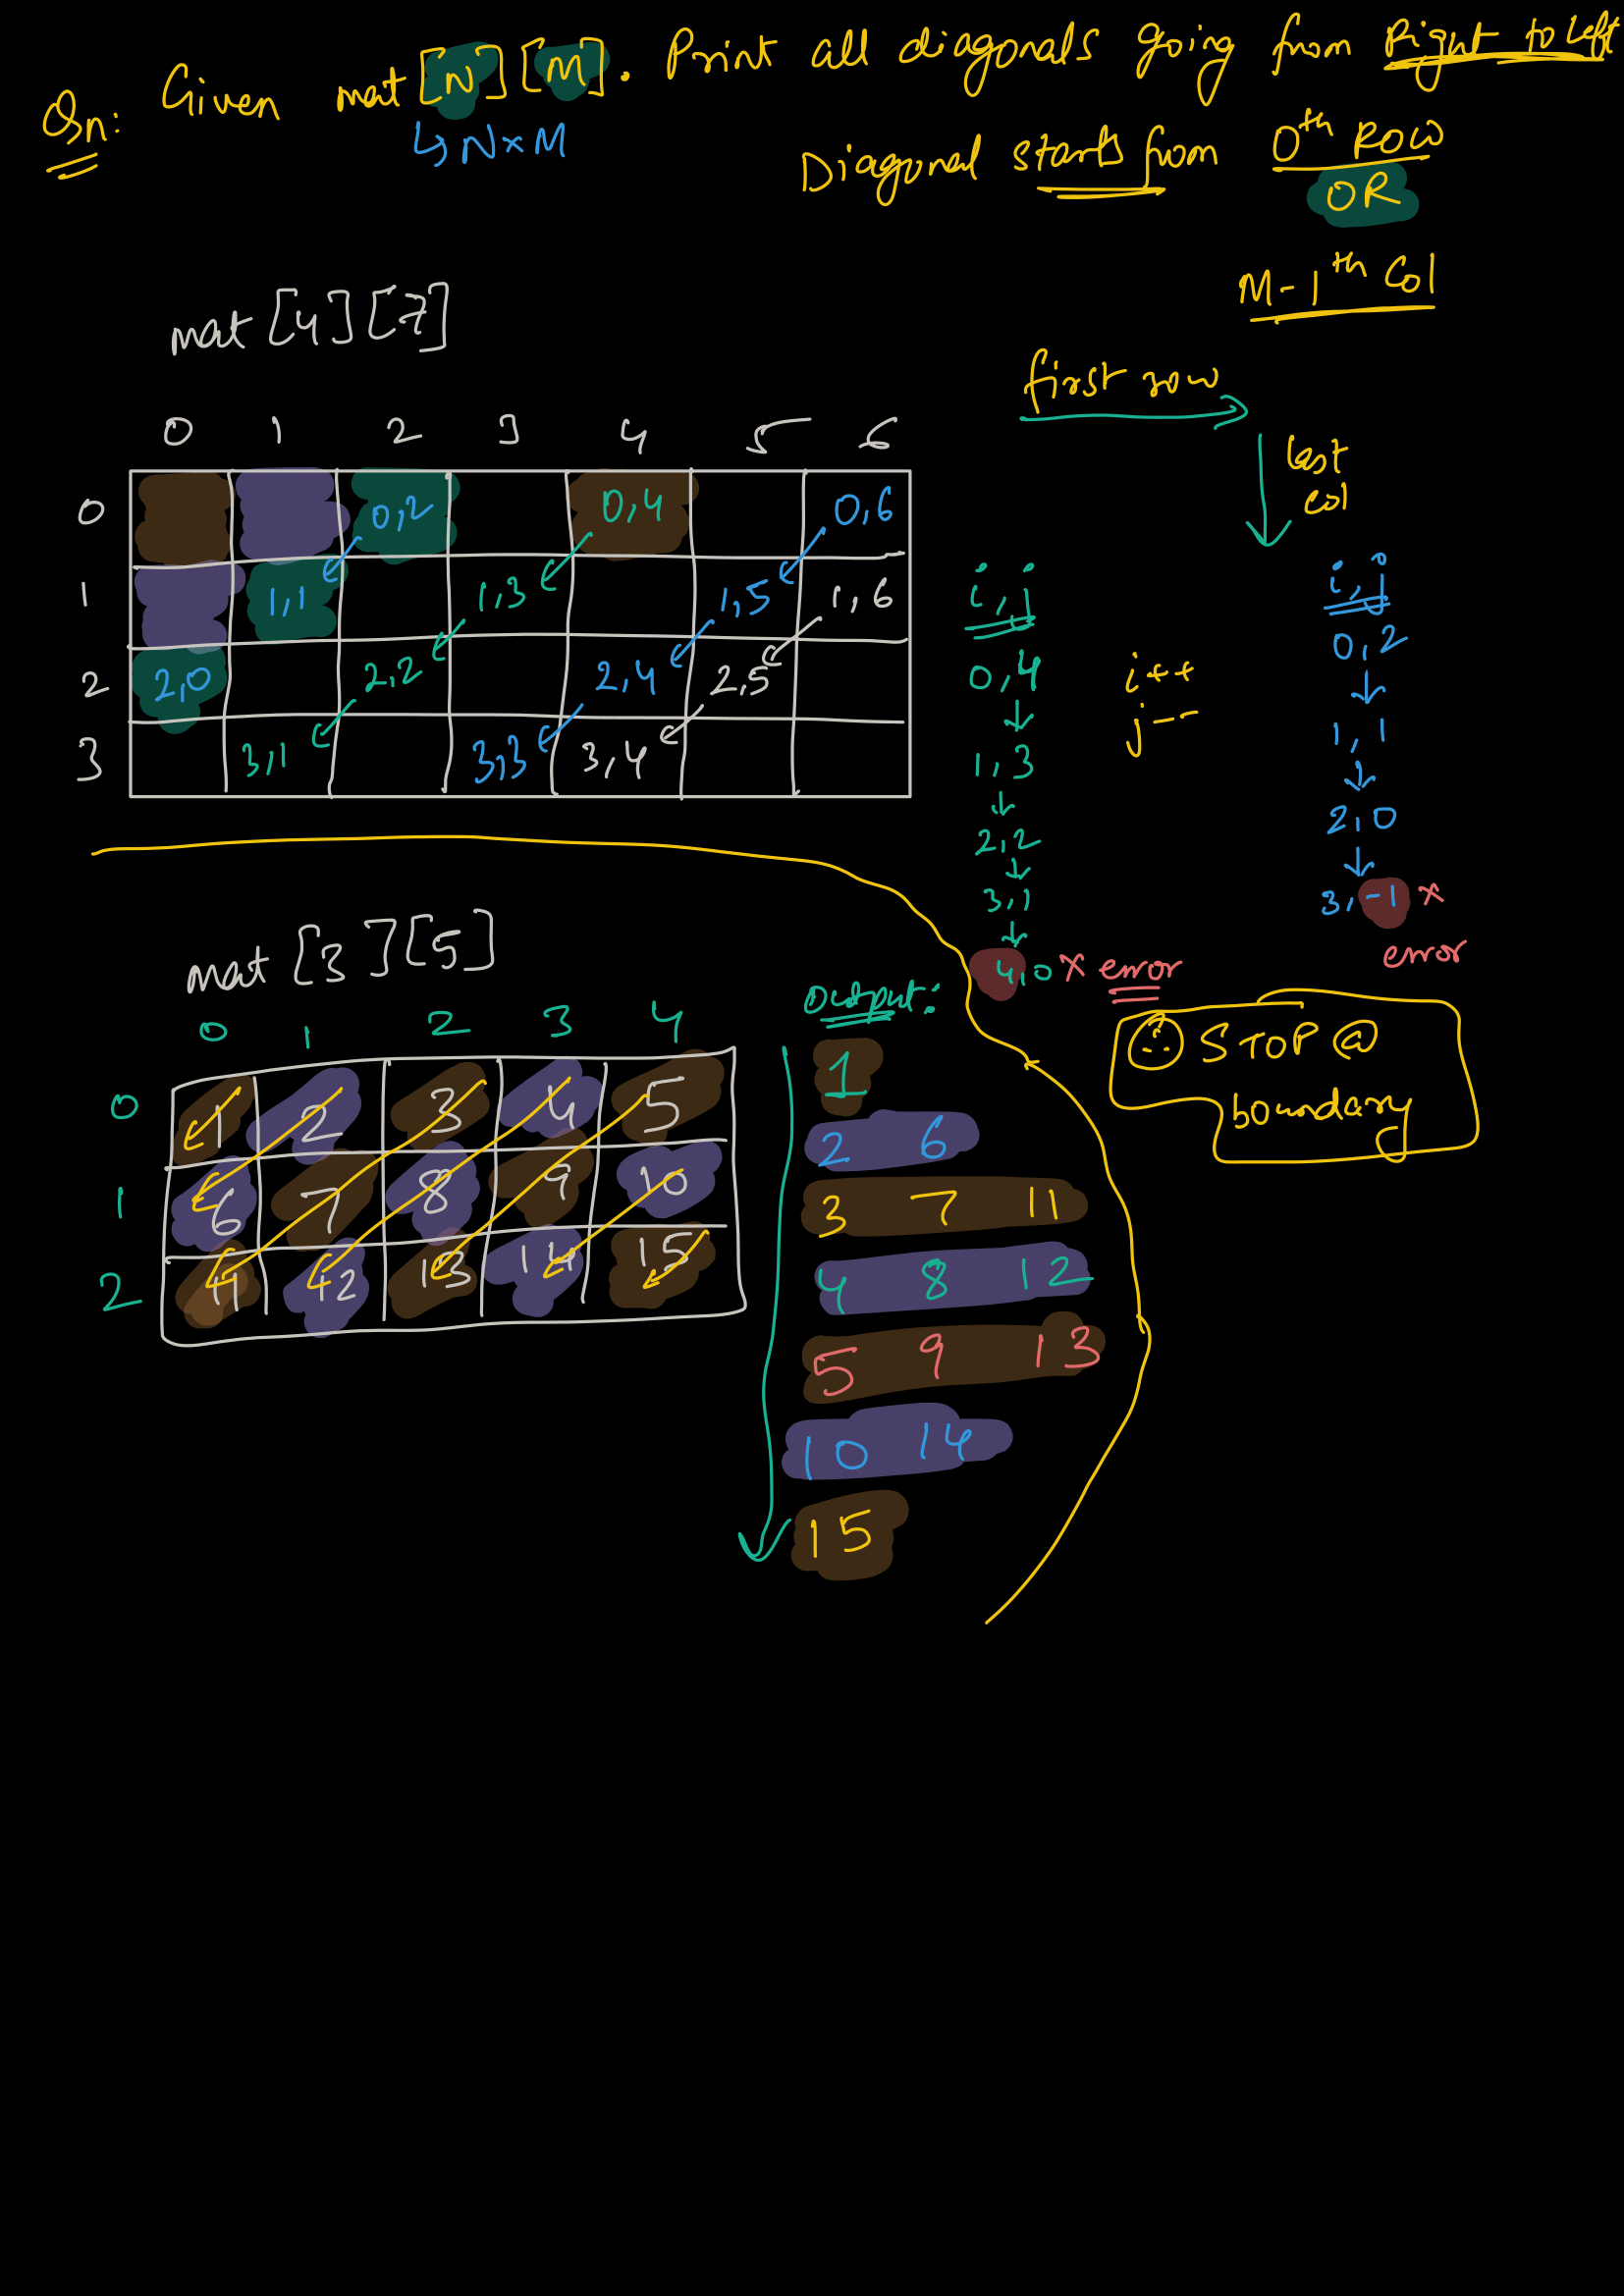 Qn: Given mat[N][M]. Print all diagonals going from Right to Left
↳ N×M
Diagonal starts from 0th ROW
OR
M-1th Col
mat[4][7]
first row
last
col
0 1 2 3 4 5 6
0 0,2 0,4 0,6
1 1,1 1,3 1,5 1,6
2 2,0 2,2 2,4 2,5
3 3,1 3,3 3,4
i, j
0,4
↓
1,3
↓
2,2
↓
3,1
↓
4,0 × error
i++
j--
i, j
0,2
↓
1,1
↓
2,0
↓
3,-1 ×
error
STOP @
boundary
mat[3][5]
0 1 2 3 4
0 1 2 3 4 5
1 6 7 8 9 10
2 11 12 13 14 15
Output:
1
2 6
3 7 11
4 8 12
5 9 13
10 14
15